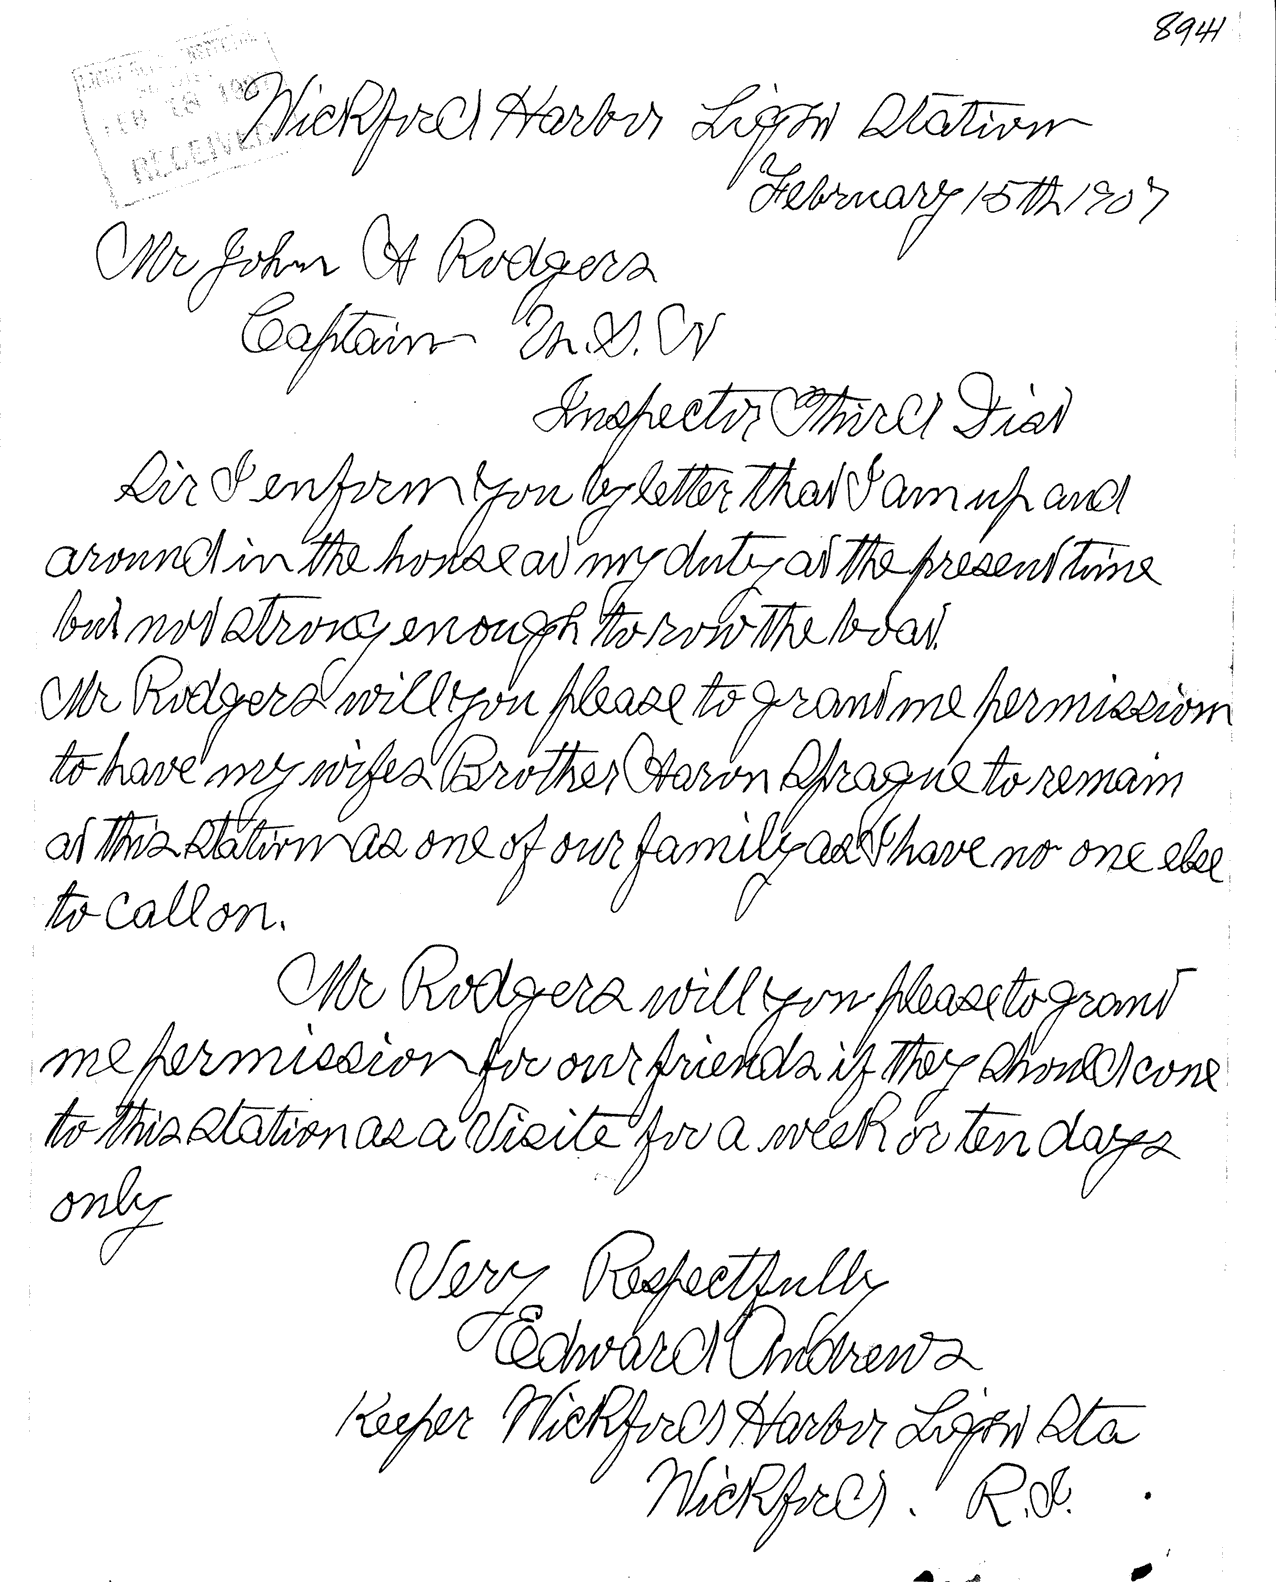 8941
RECEIVED
Wickford Harbor Light Station
February 15th 1907
Mr John A Rodgers
Captain U.S.N
Inspector Third Dist
Sir I enform you by letter that I am up and
around in the house at my duty at the present time
but not strong enough to row the boat.
Mr Rodgers will you please to grant me permission
to have my wifes Brother Aaron Sprague to remain
at this station as one of our family as I have no one else
to call on.
Mr Rodgers will you please to grant
me permission for our friends if they should come
to this station as a Visite for a week or ten days
only
Very Respectfully
Edward Andrews
Keeper Wickford Harbor Light Sta
Wickford. R.I.